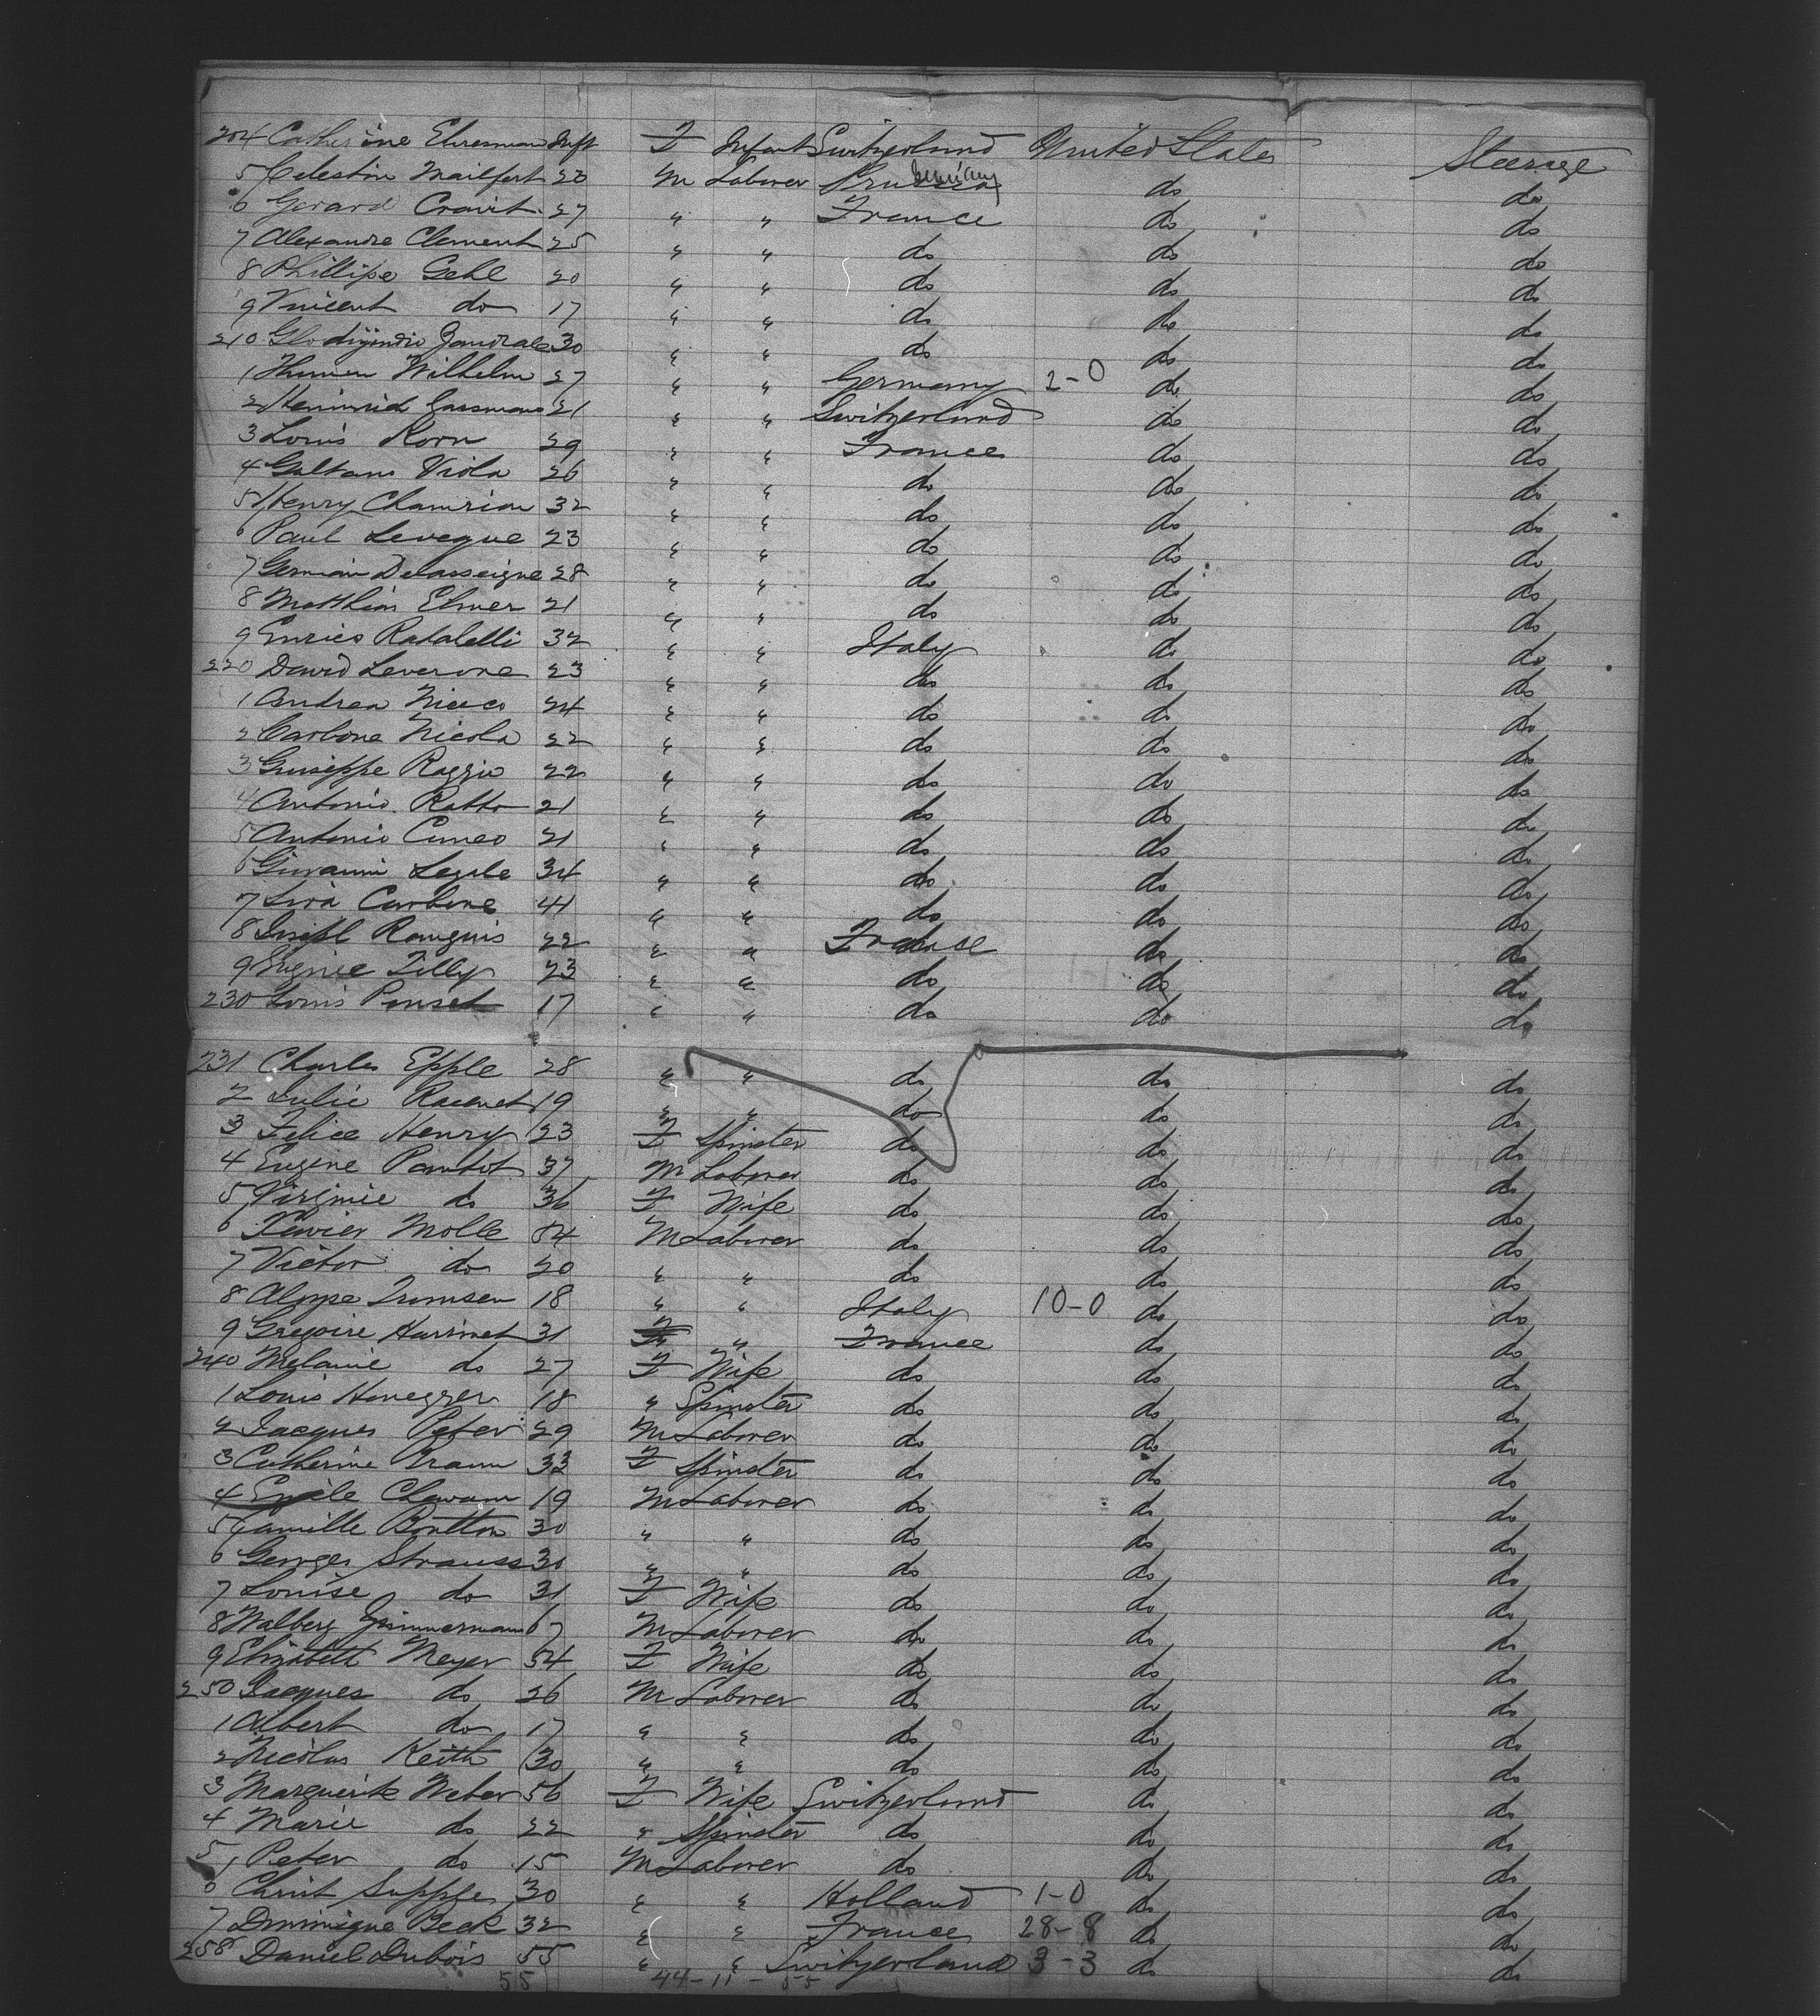 204 Catherine Ehresmann Inft F Infant Switzerland United States Steerage
5 Celestin Mailfert 23 M Laborer Prussia Germany do do
6 Gerard Cravit 27 " " France do do
7 Alexandre Clement 25 " " do do do
8 Phillipe Gehl 20 " " do do do
9 Vincent do 17 " " do do do
210 30 " " do do do
1 Wilhelm 27 " " Germany 2-0 do do
2 Gassmann 21 " " Switzerland do do
3 Louis Korn 29 " " France do do
4 Viola 26 " " do do do
5 Henry Chamrion 32 " " do do do
6 Paul Leveque 23 " " do do do
7 Germain Delasseigne 28 " " do do do
8 Matthias Elmer 21 " " do do do
9 Enrico Rafalelli 32 " " Italy do do
220 David Leverone 23 " " do do do
1 Andrea 24 " " do do do
2 Carbone Nicola 22 " " do do do
3 Guiseppe Raggio 22 " " do do do
4 Antonio Ratto 21 " " do do do
5 Antonio Cuneo 21 " " do do do
6 Giovanni 34 " " do do do
7 Carbone 41 " " do do do
8 22 " " France do do
9 Eugnie Tilly 23 " " do do do
230 Louis Penset 17 " " do do do
231 Charles Epple 28 " " do do do
2 Julie Racenet 19 " " do do do
3 Felice Henry 23 F Spinster do do do
4 Eugene Pantot 37 M Laborer do do do
5 Virginie do 36 F Wife do do do
6 Xavier Molle 54 M Laborer do do do
7 Victor do 20 " " do do do
8 18 " " Italy 10-0 do do
9 Gregoire Harrinet 31 " France do do
240 Melanie do 27 F Wife do do do
1 Louis Honegger 18 " Spinster do do do
2 Jacques Peter 29 M Laborer do do do
3 Catherine 33 F Spinster do do do
4 Emile 19 M Laborer do do do
5 Camille Boutton 30 " " do do do
6 Georges Strauss 30 " " do do do
7 Louise do 31 F Wife do do do
8 Walberg Zimmermann 67 M Laborer do do do
9 Elizabeth Meyer 54 F Wife do do do
250 Jacques do 26 M Laborer do do do
1 Albert do 17 " " do do do
2 Nicolas Keith 30 " " do do do
3 Marguerite Weber 56 F Wife Switzerland do do
4 Marie do 22 " Spinster do do do
5 Peter do 15 M Laborer do do do
6 Christ Suppfe 30 " " Holland 1-0 do do
7 Dominique Beck 32 " " France 28-8 do do
258 Daniel Dubois 55 " " Switzerland 3-3 do do
55 44-11-55